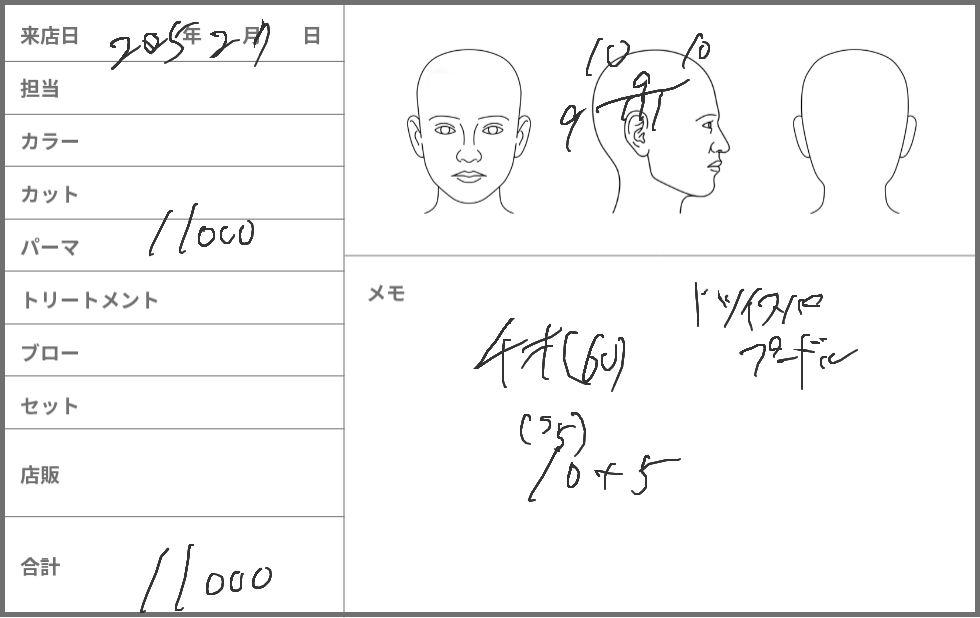 来店日 2025年 2月7日
担当
カラー
カット
パーマ 11000
トリートメント
ブロー
セット
店販
合計 11000
10 10
9 9
メモ
ドツイスパ
プードル
チオ(60)
(55)
10+5